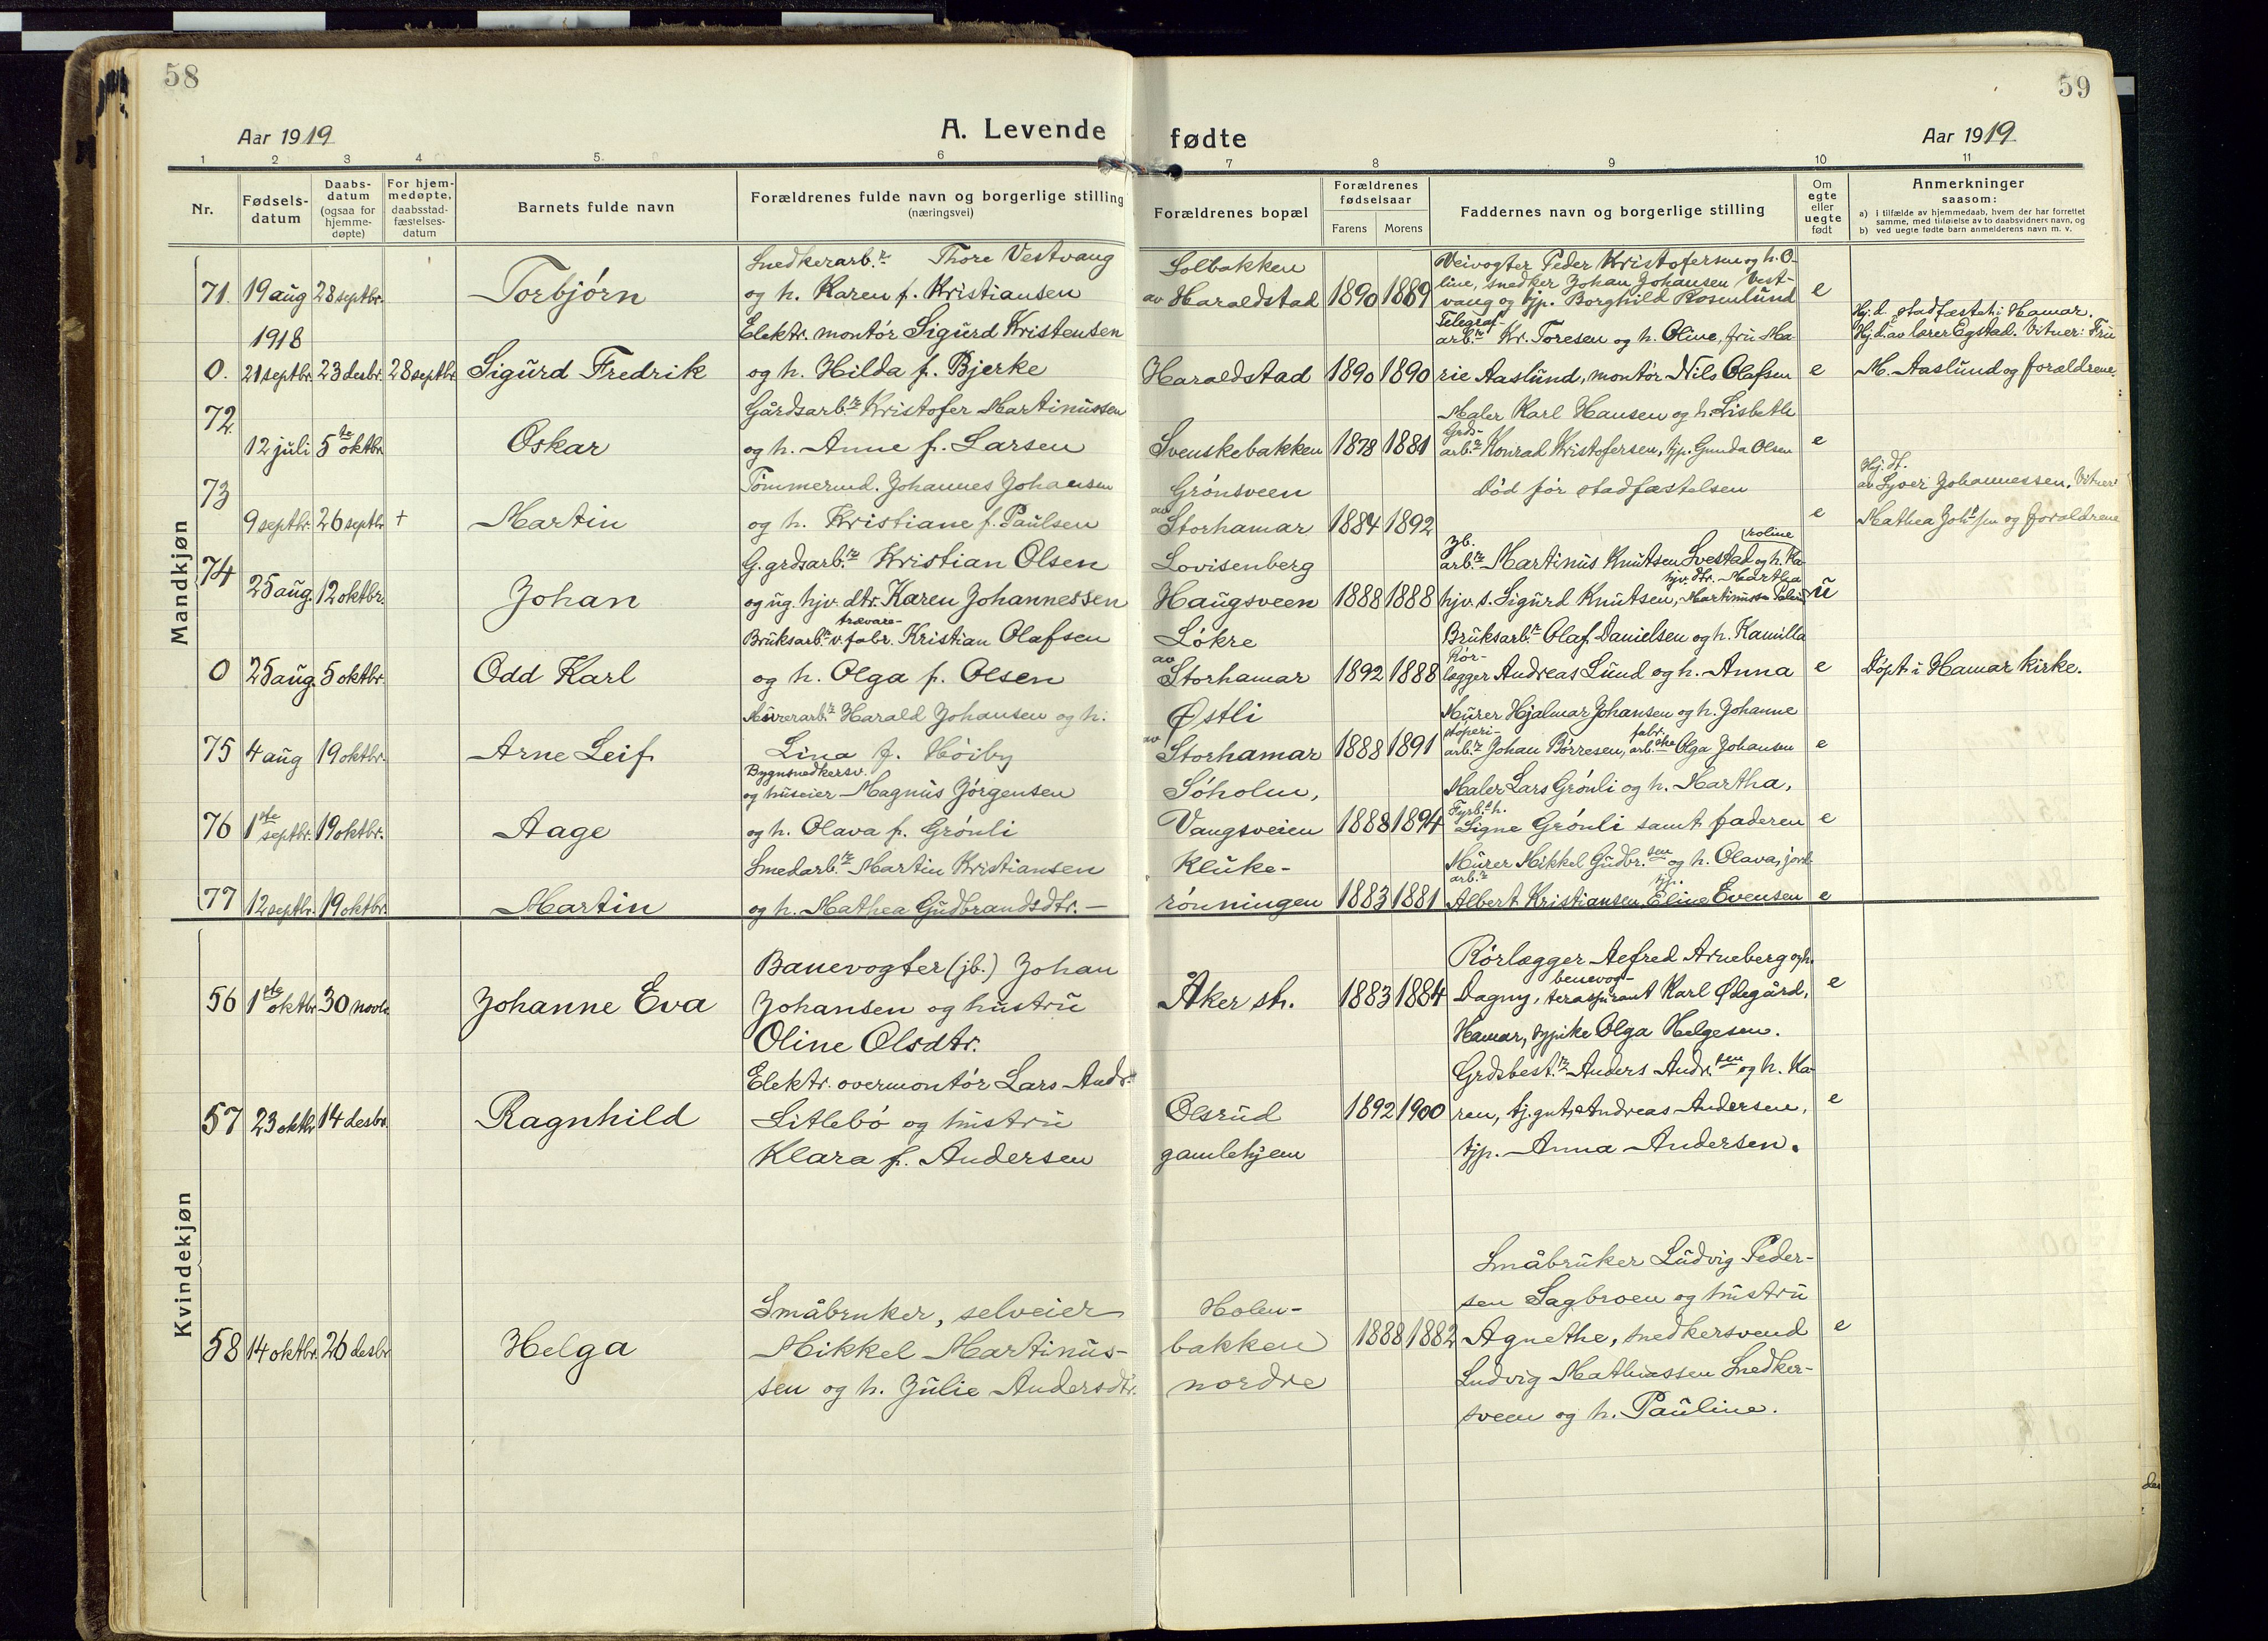 58
59
Aar 1919
A. Levende fødte
Aar 1919
1 2 3 4 5. 6 7 8 9 10 11
Nr.
Fødsels-
datum
Daabs-
datum
(ogsaa for
hjemme-
døpte)
For hjem-
medøpte,
daabsstad-
fæstelses-
datum
Barnets fulde navn
Forældrenes fulde navn og borgerlige stilling
(næringsvei)
Forældrenes bopæl
Forældrenes
fødselsaar
Farens Morens
Faddernes navn og borgerlige stilling
Om
egte
eller
uegte
født
Anmerkninger
saasom:
a) i tilfælde av hjemmedaab, hvem der har forrettet
samme, med tilføielse av to daabsvidners navn, og
b) ved uegte fødte barn anmelderens navn m. v.
Mandkjøn
71. 19 aug 28 septbr. Torbjörn
Snedkerarb.r Thore Vestvang
og h. Karen f. Kristiansen
Solbakken
av Haraldstad
1890 1889
Veivogter Peder Kristofersen og h. O-
line, snedker Johan Johansen Vest-
vang og tjp. Borghild Rosenlund
e
0. 1918
21 septbr. 23 desbr. 28 septbr. Sigurd Fredrik
Elektr. montör Sigurd Kristensen
og h. Hilda f. Bjerke
Haraldstad
1890 1890
Telegraf-
arb.r Kr. Toresen og h. Oline, fru Ma-
rie Aaslund, montör Nils Olafsen
e
Hj.d. stadfæstet i Hamar.
Hj.d. av lærer Egstad. Vitner: Fru
M. Aaslund og forældrene.
72. 12 juli 5te oktbr. Oskar
Gårdsarb.r Kristofer Martinussen
og h. Anne f. Larsen
Svenskebakken
1878 1881
Maler Karl Hansen og h. Lisbeth
Grds-
arb.r Konrad Kristofersen, tjp. Gunda Olsen
e
73 9 septbr. 26 septbr + Martin
Tömmermd. Johannes Johansen
og h. Kristiane f. Paulsen
Grönsveen
av
Storhamar
1884 1892
Död för stadfæstelsen
e
Hj.dt.
av Syver Johannessen. Vitner:
Mathea Joh.sen og forældrene
74 25 aug. 12 oktbr. Johan
G. grdsarb.r Kristian Olsen
og ug. hjv. dtr. Karen Johannessen
Lovisenberg
Haugsveen
1888 1888
jb.
arb.r Martinus Knutsen Svestad og h. Ka-
roline
hjv. s. Sigurd Knutsen, hjv. dtr. Martha
Martinussen
u
0 25 aug. 5 oktbr. Odd Karl
trævare-
Bruksarb.r v. fabr. Kristian Olafsen
og h. Olga f. Olsen
Lökre
av
Storhamar
1892 1888
Bruksarb.r Olaf Danielsen og h. Kamilla
Rör-
lægger Andreas Lund og h. Anna
e
Döpt i Hamar kirke.
75 4 aug 19 oktbr. Arne Leif
Murerarb.r Harald Johansen og h.
Lina f. Höiby
Østli
av
Storhamar
1888 1891
Murer Hjalmar Johansen og h. Johanne
stöperi-
arb.r Johan Börresen, fabr.
arb.ske Olga Johansen
e
76 1ste septbr. 19 oktbr. Aage
Bygnsnedkersv.
og huseier Magnus Jörgensen
og h. Olava f. Grönli
Söholm,
Vangsveien
1888 1894
Maler Lars Grönli og h. Martha,
Signe Grönli samt faderen
e
77 12 septbr. 19 oktbr. Martin
Smedarb.r Martin Kristiansen
og h. Mathea Gudbrandsdtr. —
Kluke-
rönningen
1883 1881
Murer Mikkel Gudbr.sen og h. Olava, jord-
arb.r
Albert Kristiansen, tjp. Eline Evensen
e
Kvindekjøn
56 1ste oktbr 30 novbr Johanne Eva
Banevogter (jb.) Johan
Johansen og hustru
Oline Olsdtr.
Åker st.
1883 1884
Rörlægger Alfred Arneberg og h.
Dagny, banevog-
teraspirant Karl Ødegård,
Hamar, tjpike Olga Helgesen.
e
57 23 oktbr 14 desbr. Ragnhild
Elektr. overmontör Lars Andr.
Litlebö og hustru
Klara f. Andersen
Olsrud
gamlehjem
1892 1900
Grdsbest.r Anders Andr.sen og h. Ka-
ren, tj.gut Andreas Andersen,
tjp. Anna Andersen.
e
58 14 oktbr. 26 desbr Helga
Småbruker, selveier
Mikkel Martinus-
sen og h. Julie Andersdtr.
Holen-
bakken
nordre
1888 1882
Småbruker Ludvig Peder-
sen Sagbroen og hustru
Agnethe, snedkersvend
Ludvig Mathiassen Snedker-
sveen og h. Pauline.
e